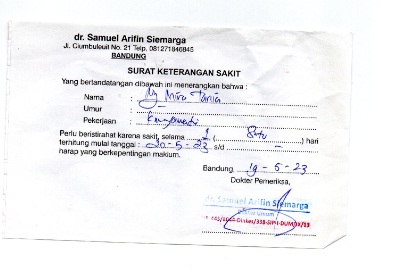 dr. Samuel Arifin Siemarga
Jl. Ciumbuleuit No. 21 Telp. 081271846845
BANDUNG
SURAT KETERANGAN SAKIT
Yang bertandatangan dibawah ini menerangkan bahwa :
Nama : Ny Mira Tania
Umur :
Pekerjaan :
Perlu beristirahat karena sakit, selama 1 ( Satu ) hari
terhitung mulai tanggal : 20-5-23 s/d -
harap yang berkepentingan maklum.
Bandung, 19-5-23
Dokter Pemeriksa,
dr. Samuel Arifin Siemarga
Dokter Umum